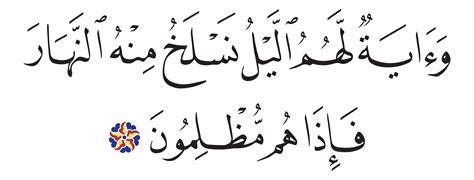 وَءَايَةٌ لَّهُمُ ٱلَّيْلُ نَسْلَخُ مِنْهُ ٱلنَّهَارَ
فَإِذَا هُم مُّظْلِمُونَ